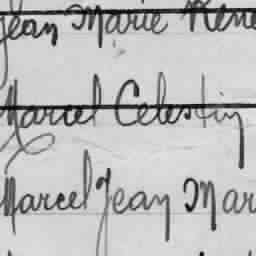 Jean Marie René
Marcel Celestin
Marcel Jean Mar